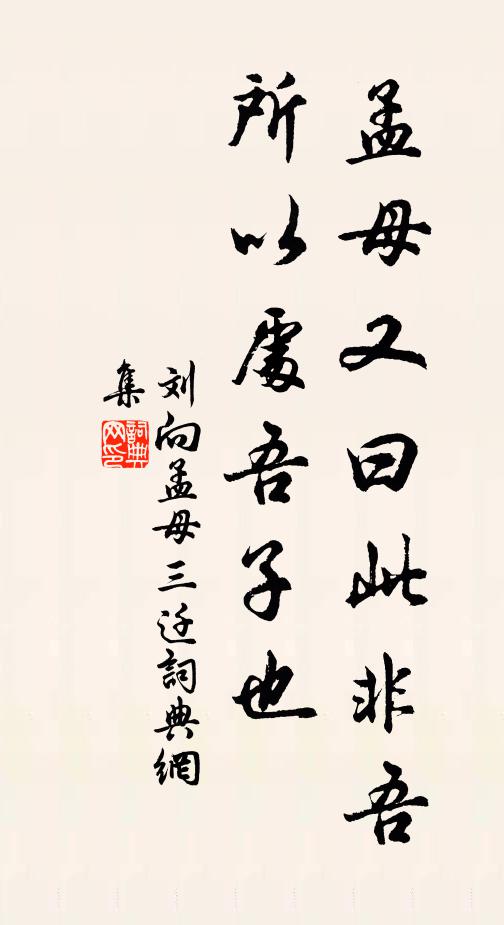 孟母又曰此非吾
所以處吾子也
刘向孟母三迁詞典網
集
詞典網印